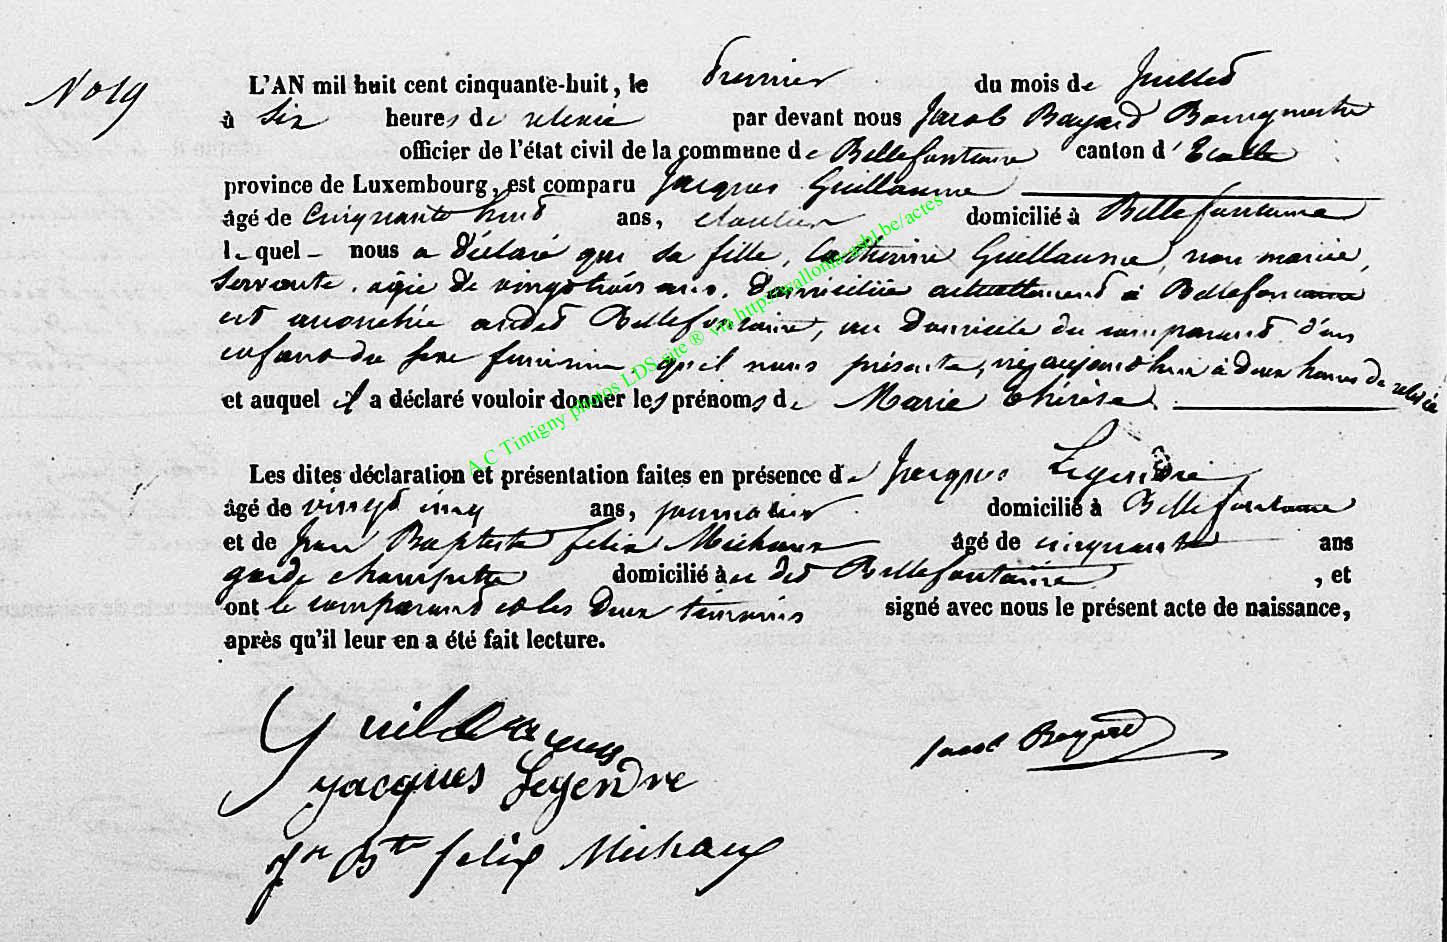 No 19
L'AN mil huit cent cinquante-huit, le premier du mois de Juillet
à six heures de relevée par devant nous Jacob Bayard Bourgmestre
officier de l'état civil de la commune de Bellefontaine canton d'Etalle
province de Luxembourg, est comparu Jacques Guillaume
âgé de cinquante huit ans, cloutier domicilié à Bellefontaine
lequel nous a déclaré que sa fille, Catherine Guillaume, non mariée,
servante, agée de vingt trois ans, domiciliée actuellement à Bellefontaine
est accouchée audit Bellefontaine, au domicile du comparant d'un
enfant du sexe féminin qu'il nous présente, né aujourd'hui à deux heures de relevée
et auquel il a déclaré vouloir donner les prénoms de Marie Thérèse
Les dites déclaration et présentation faites en présence de Jacques Legendre
âgé de vingt cinq ans, journalier domicilié à Bellefontaine
et de Jean Baptiste felix Michaux âgé de cinquante ans
garde champetre domicilié au dit Bellefontaine, et
ont le comparant et les deux témoins signé avec nous le présent acte de naissance,
après qu'il leur en a été fait lecture.
Guillaume
Jacob Bayard
jacques Legendre
jn Bte felix Michaux
A.C Tintigny photos LDS site ® via http://wallonia-asbl.be/actes